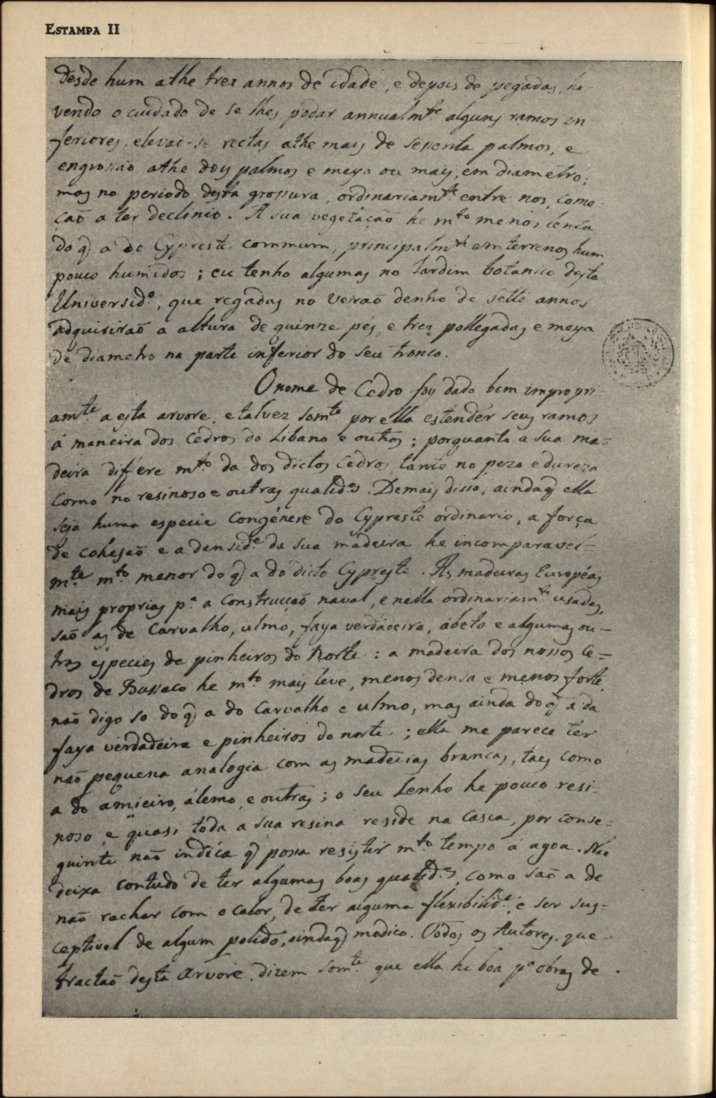 ESTAMPA II
desde hum athe tres annos de idade, e depois de pegadas, ha-
vendo o cuidado de se lhes podar annualm.te alguns ramos in
feriores, elevaõ-se rectas athe mais de sesenta palmos, e
engrossaõ athe dois palmos e meyo ou mais, em diametro;
mas no periodo desta grossura, ordinariam.te entre nos, come-
caõ a ter declinio. A sua vegetaçaõ he m.to menos lenta
do q̃ a do Cypreste commum, principalm.te em terrenos hum
pouco humidos; eu tenho algumas no Jardim botanico desta
Universid.e, que regadas no veraõ dentro de sette annos
adquiriraõ a altura de quinze pés, e tres pollegadas e meya
de diametro na parte inferior do seu tronco.
O nome de Cedro foy dado bem impropri
am.te a esta arvore, e talvez som.te por ella estender seus ramos
á maneira dos Cedros do Libano e outros; porquanto a sua ma-
deira difere m.to da dos dictos Cedros, tanto no pezo e dureza
como no resinoso e outras qualid.es. Demais disso, aindaq̃ ella
seja huma especie congénere do Cypreste ordinario, a força
de cohesaõ e a densid.e da sua madeira he incomparavel-
m.te m.to menor do q̃ a do dicto Cypreste. As madeiras Européas
mais proprias p.a a construcçaõ naval, e nella ordinariam.te usadas,
saõ as de Carvalho, ulmo, faya verdadeira, abeto e algumas ou-
tras especies de pinheiros do Norte: a madeira dos nossos Ce-
dros de Bussaco he m.to mais leve, menos densa e menos forte,
naõ digo so do q̃ a do Carvalho e ulmo, mas ainda do q̃ a da
faya verdadeira e pinheiros do norte; ella me parece ter
naõ pequena analogia com as madeiras brancas, taes como
a do amieiro, álemo, e outras; o seu Lenho he pouco resi-
noso, e quasi tóda a sua resina reside na casca, por conse-
guinte naõ indíca q̃ possa resistir m.to tempo á agoa. Naõ
deixa contudo de ter algumas boas qualid.es, como saõ a de
naõ rachar com o calor, de ter alguma flexibilid.e, e ser sus-
ceptivel de algum polido, aindaq̃ modico. Todos os Autores, que
tractaõ desta Arvore, dizem som.te que ella he boa p.a obras de